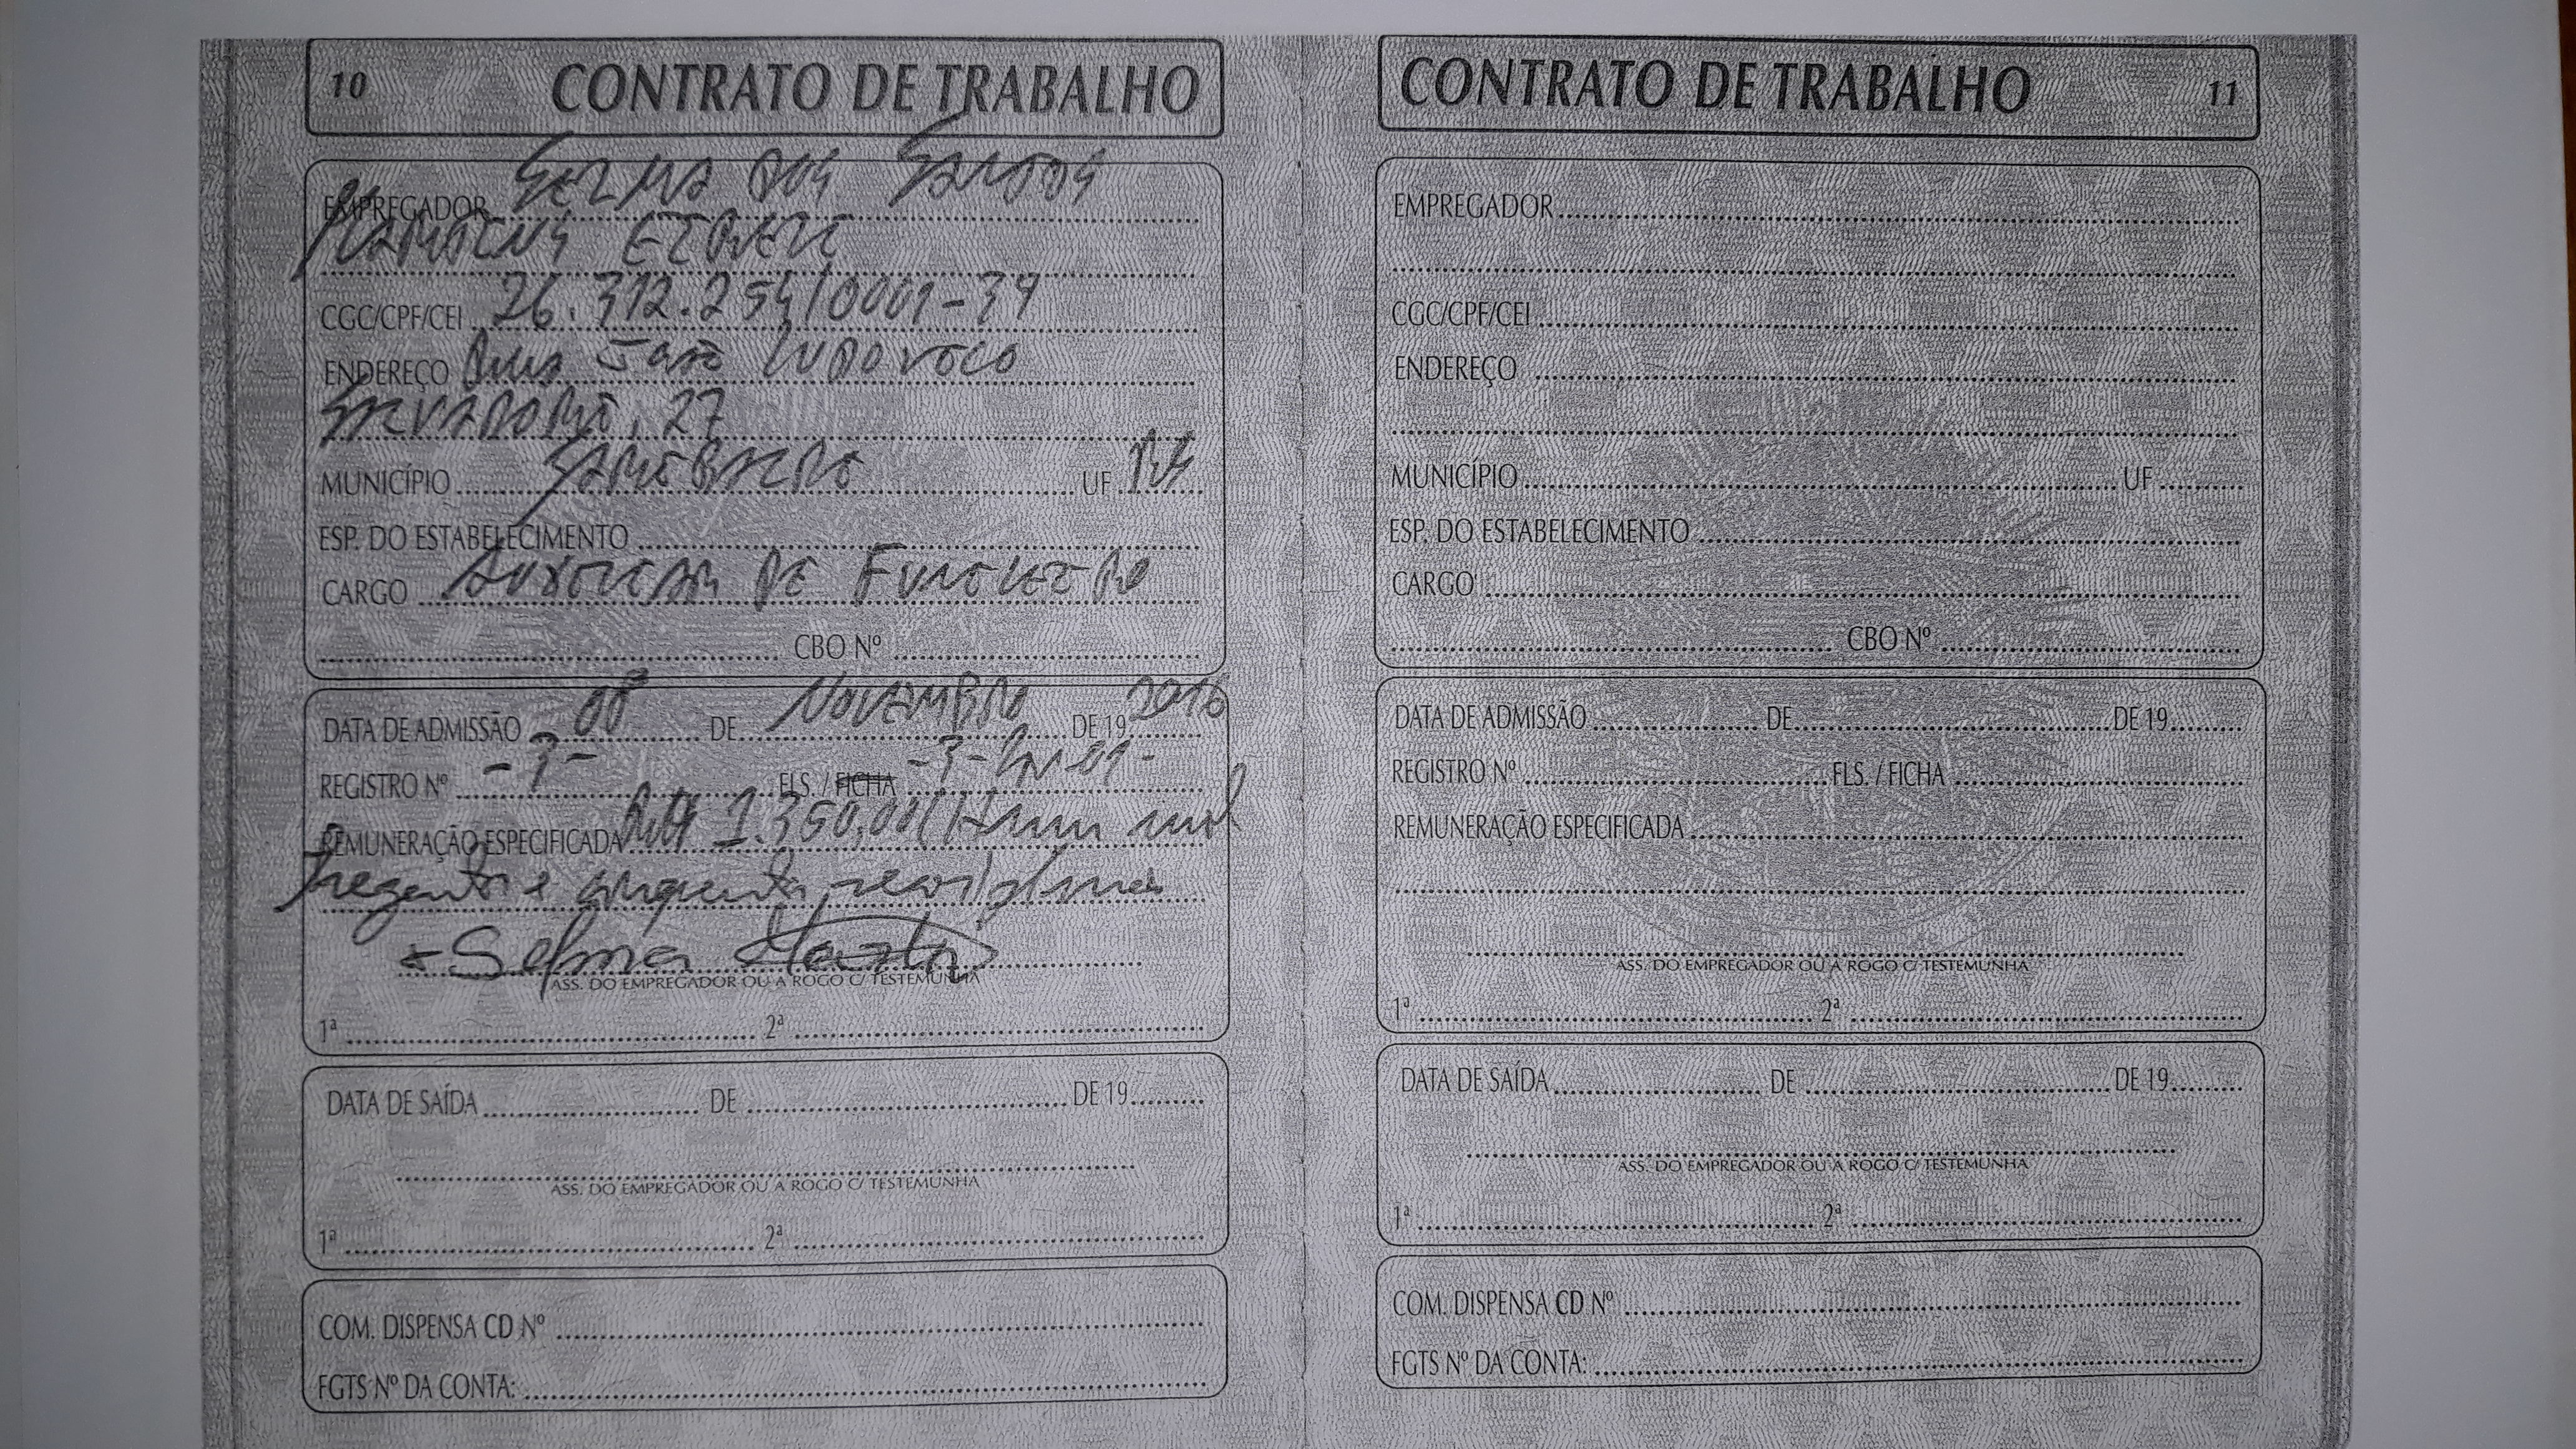 10 CONTRATO DE TRABALHO
EMPREGADOR SELMA DOS SANTOS
MARTINS EIRELI
CGC/CPF/CEI 26.312.254/0001-34
ENDEREÇO RUA JOSÉ LUDOVOCO
27
MUNICÍPIO UF
ESP. DO ESTABELECIMENTO
CARGO AUXILIAR DE FUNILEIRO
CBO Nº
DATA DE ADMISSÃO 08 DE NOVEMBRO DE 19 2016
REGISTRO Nº -3- FLS. / FICHA -3-
REMUNERAÇÃO ESPECIFICADA 1.350,00 (Hum mil
trezentos e cinquenta reais)
Selma
ASS. DO EMPREGADOR OU A ROGO C/ TESTEMUNHA
1ª 2ª
DATA DE SAÍDA DE DE 19
ASS. DO EMPREGADOR OU A ROGO C/ TESTEMUNHA
1ª 2ª
COM. DISPENSA CD Nº
FGTS Nº DA CONTA:
CONTRATO DE TRABALHO 11
EMPREGADOR
CGC/CPF/CEI
ENDEREÇO
MUNICÍPIO UF
ESP. DO ESTABELECIMENTO
CARGO
CBO Nº
DATA DE ADMISSÃO DE DE 19
REGISTRO Nº FLS. / FICHA
REMUNERAÇÃO ESPECIFICADA
ASS. DO EMPREGADOR OU A ROGO C/ TESTEMUNHA
1ª 2ª
DATA DE SAÍDA DE DE 19
ASS. DO EMPREGADOR OU A ROGO C/ TESTEMUNHA
1ª 2ª
COM. DISPENSA CD Nº
FGTS Nº DA CONTA: